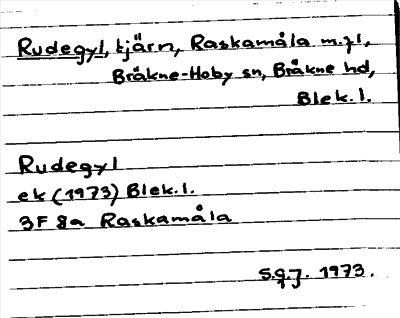 Rudegyl, tjärn, Raskamåla m.fl,
Bräkne-Hoby sn, Bräkne hd,
Blek.l.
Rudegyl
ek (1973) Blek.l.
3F 8a Raskamåla
S.G.J. 1973.